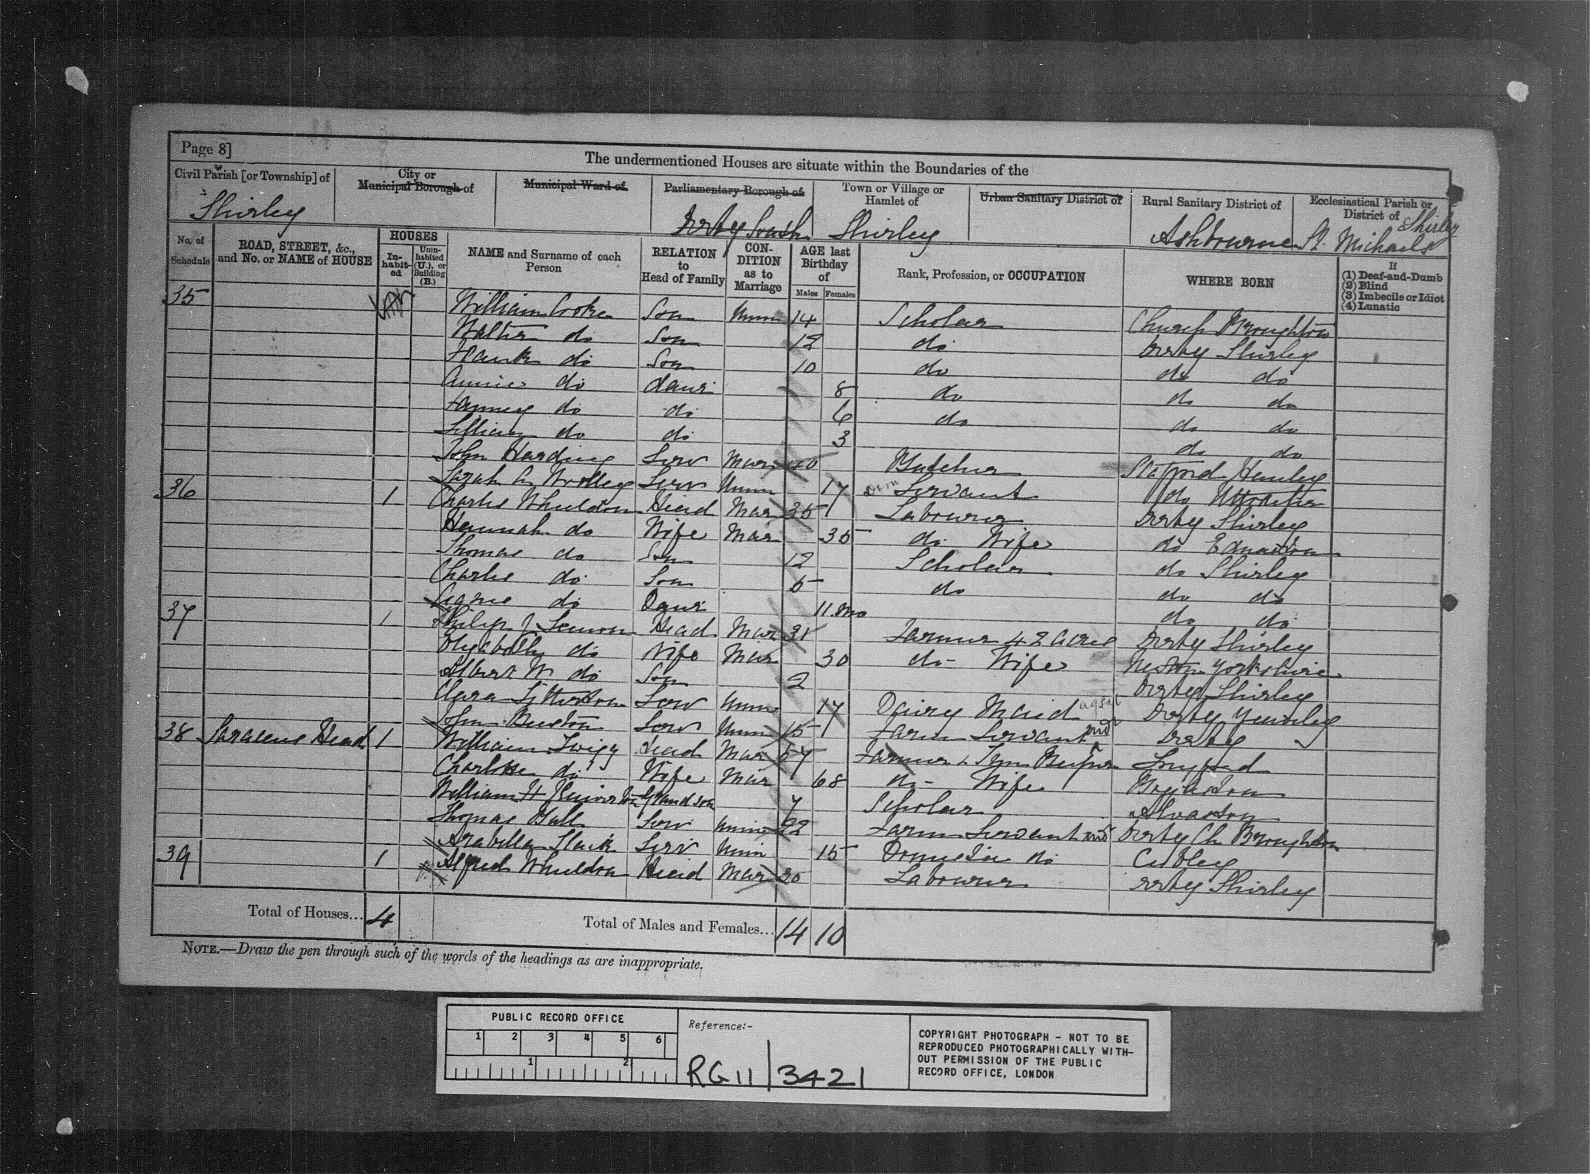 Page 8]
The undermentioned Houses are situate within the Boundaries of the
Civil Parish [or Township] of
City or Municipal Borough of
Municipal Ward of
Parliamentary Borough of
Town or Village or Hamlet of
Urban Sanitary District of
Rural Sanitary District of
Ecclesiastical Parish or District of
Shirley
Derby South
Shirley
Ashbourne
St. Michaels Shirley
No. of Schedule
ROAD, STREET, &c., and No. or NAME of HOUSE
HOUSES
In-habit-ed
Unin-habited (U.), or Building (B.)
NAME and Surname of each Person
RELATION to Head of Family
CON-DITION as to Marriage
AGE last Birthday of
Males
Females
Rank, Profession, or OCCUPATION
WHERE BORN
If
(1) Deaf-and-Dumb
(2) Blind
(3) Imbecile or Idiot
(4) Lunatic
35 William Cooke Son Unm 14 Scholar Church Broughton
Walter do Son 12 do Derby Shirley
Frank do Son 10 do do do
Annie do daur 8 do do do
Fanney do do 6 do do do
Lillian do do 3 do do
John Harding Serv Mar Butcher Stafford
Sarah A Woolley Serv Unm 17 Dom Servant do Uttoxeter
36 1 Charles Wheeldon Head Mar 35 Labourer Derby Shirley
Hannah do Wife Mar 35 do Wife do Ednaston
Thomas do Son 12 Scholar do Shirley
Charles do Son 5 do do do
do Daur 11 mo do do
37 1 Philip J Head Mar 31 Farmer 42 acres Derby Shirley
do Wife Mar 30 do Wife Yorkshire
Albert W do Son 2 Derby Shirley
Clara Serv Unm 17 Dairy Maid Derby Yeaveley
John Buxton Serv Unm 15 Farm Servant ind Derby
38 Saracens Head 1 William Twigg Head Mar Farmer & Longford
Charlotte do Wife Mar 68 do Wife Boylestone
William H Grandson 7 Scholar Alvaston
Thomas Ball Serv Unm 22 Farm Servant ind Derby Ch Broughton
Arabella Slack Serv Unm 15 Domestic do Cubley
39 1 Alfred Wheeldon Head Mar 30 Labourer Derby Shirley
Total of Houses... 4
Total of Males and Females... 14 10
NOTE.—Draw the pen through such of the words of the headings as are inappropriate.
PUBLIC RECORD OFFICE
1 2 3 4 5 6
1 2
Reference:-
RG 11 / 3421
COPYRIGHT PHOTOGRAPH - NOT TO BE
REPRODUCED PHOTOGRAPHICALLY WITH-
OUT PERMISSION OF THE PUBLIC
RECORD OFFICE, LONDON